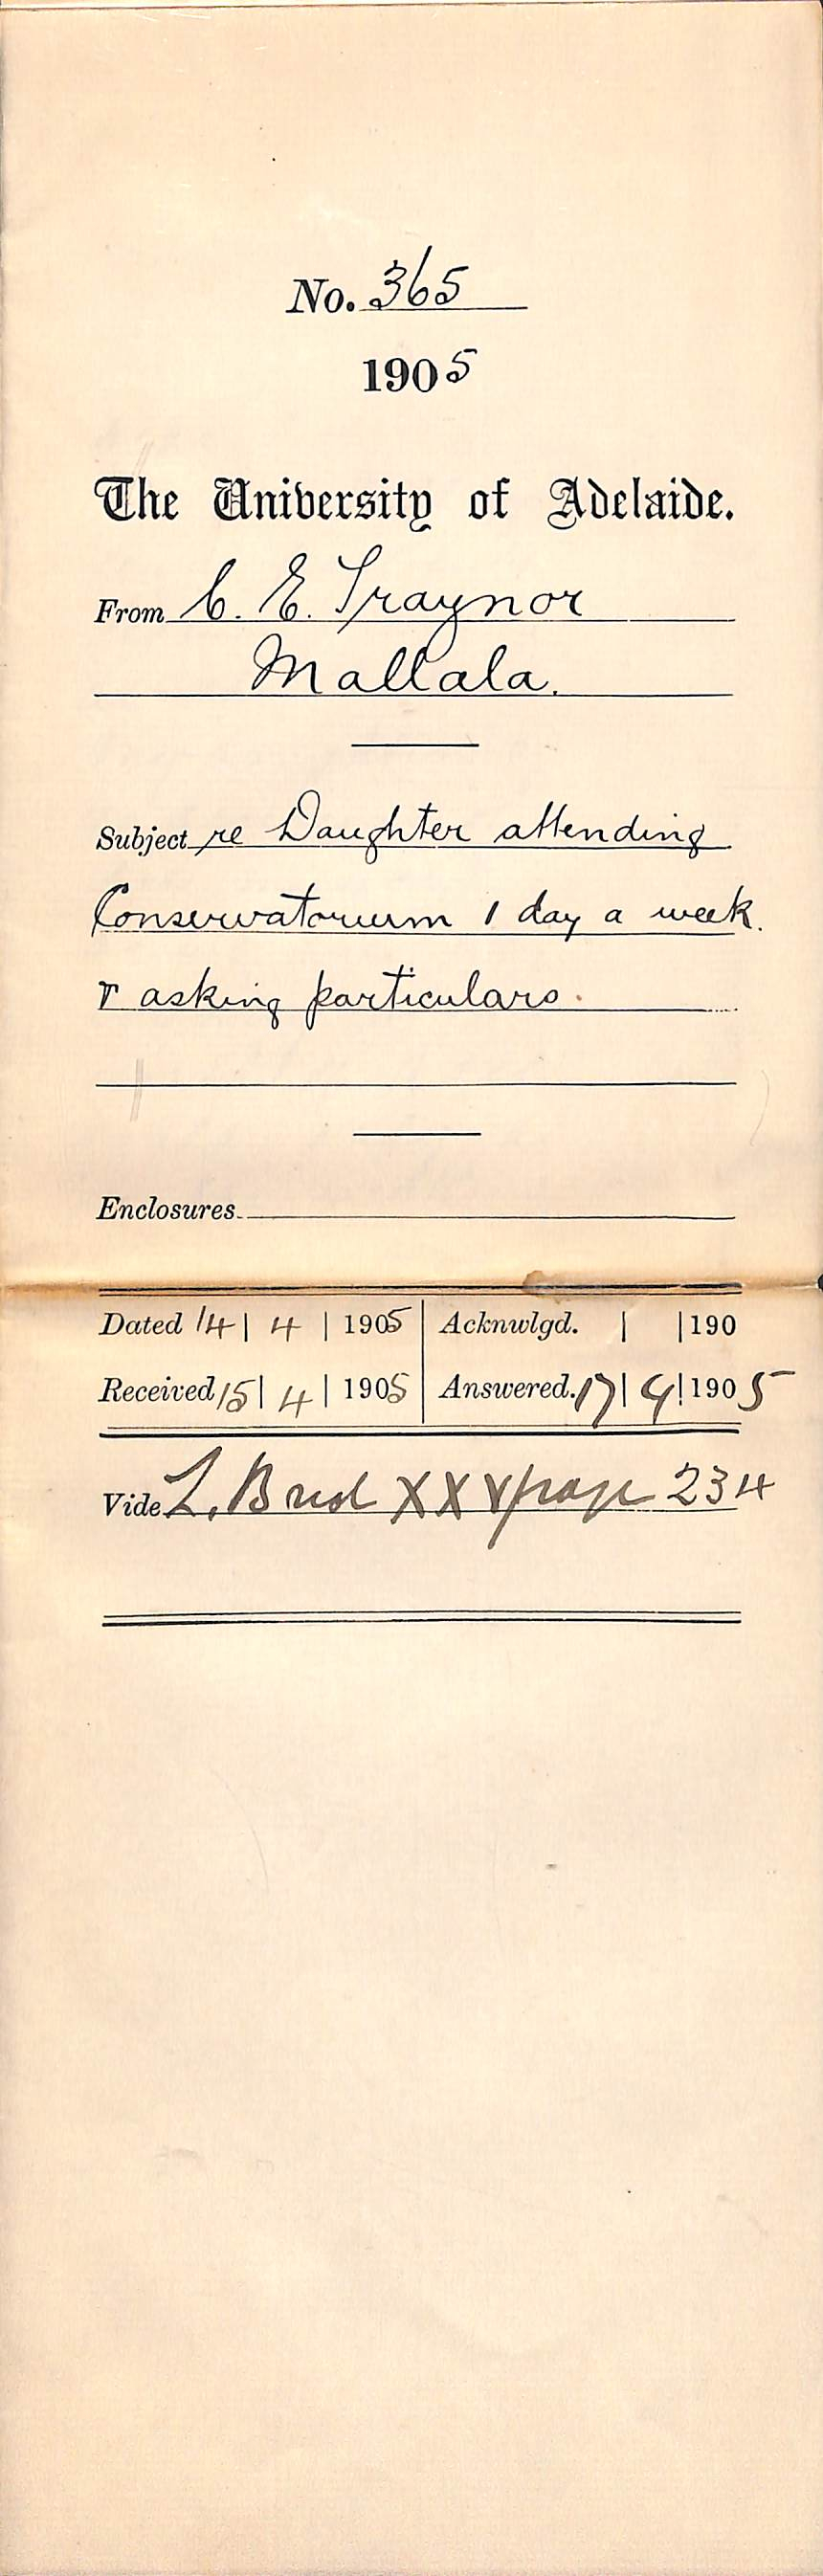 No. 365
1905
The University of Adelaide.
From C. E. Traynor
Mallala.
Subject re Daughter attending
Conservatorium 1 day a week.
& asking particulars.
Enclosures
Dated 14 | 4 | 1905 | Acknwlgd. | | 190
Received 15 | 4 | 1905 | Answered. 17 | 4 | 1905
Vide L. Book XXV page 234